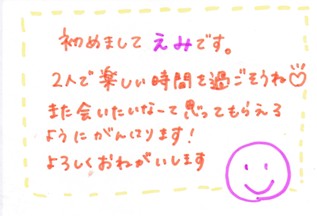 初めまして えみです。
2人で楽しい時間を過ごそうね♡
また会いたいなーて思ってもらえる
ようにがんばります!
よろしくおねがいします